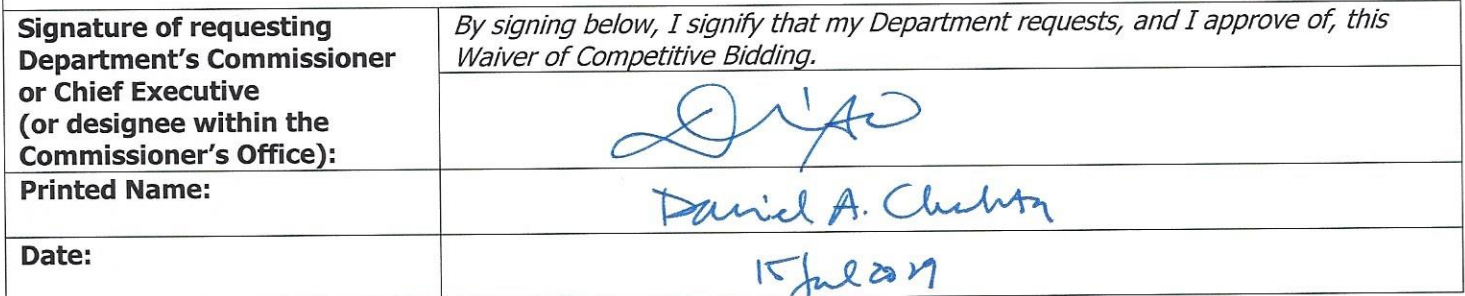 Signature of requesting
Department's Commissioner
or Chief Executive
(or designee within the
Commissioner's Office):
By signing below, I signify that my Department requests, and I approve of, this
Waiver of Competitive Bidding.
Printed Name:
Daniel A.
Date:
15 Jul